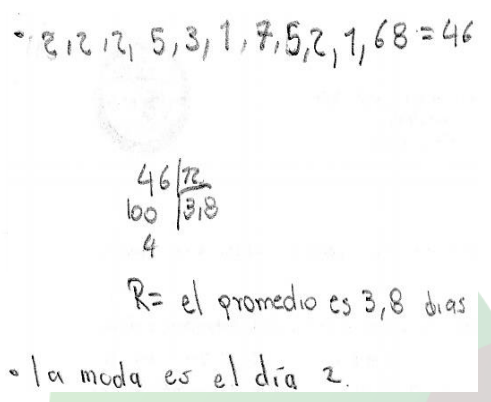 • 2,2,2, 5,3,1,7,5,2,1,68=46
46|12
100 |3,8
4
R= el promedio es 3,8 dias
• la moda es el día 2.